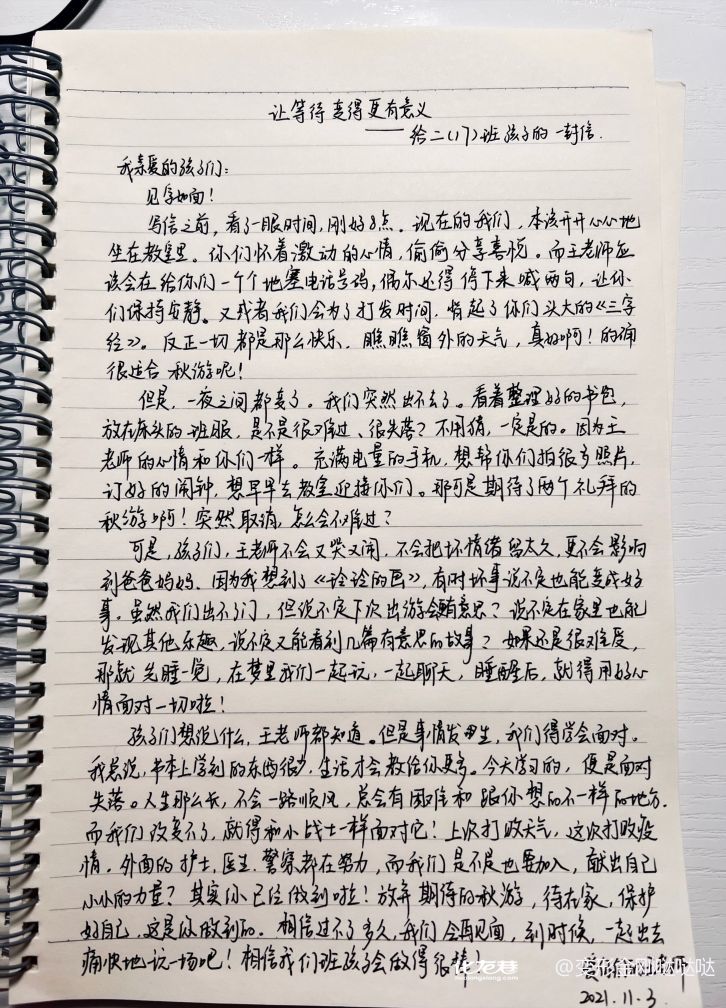 让等待变得更有意义
——给二(17)班孩子的一封信.
我亲爱的孩子们:
见字如面!
写信之前,看了一眼时间,刚好8点。现在的我们,本该开开心心地
坐在教室里。你们怀着激动的心情,偷偷分享喜悦。而王老师应
该会在给你们一个个地塞电话号码,偶尔还得停下来喊两句,让你
们保持安静。又或者我们会为了打发时间,背起了你们头大的《三字
经》。反正一切都是那么快乐.瞧瞧窗外的天气,真好啊!的确
很适合秋游呢!
但是,一夜之间都变了。我们突然出不去了。看着整理好的书包,
放在床头的班服,是不是很难过、很失落?不用猜,一定是的。因为王
老师的心情和你们一样。充满电量的手机,想帮你们拍很多照片,
订好的闹钟,想早早去教室迎接你们。那可是期待了两个礼拜的
秋游啊!突然取消,怎么会不难过?
可是,孩子们,王老师不会又哭又闹,不会把坏情绪留太久,更不会影响
到爸爸妈妈、因为我想到了《玲玲的画》,有时坏事说不定也能变成好
事。虽然我们出不了门,但说不定下次出游会更有意思?说不定在家里也能
发现其他乐趣,说不定又能看到几篇有意思的故事?如果还是很难受,
那就先睡一觉,在梦里我们一起玩,一起聊天,睡醒后,就得用好心
情面对一切啦!
孩子们想说什么,王老师都知道。但是事情发生,我们得学会面对。
我总说,书本上学到的东西很少,生活才会教给你更多。今天学习的,便是面对
失落。人生那么长,不会一路顺风,总会有困难和跟你想的不一样的地方.
而我们改变不了,就得和小战士一样面对它!上次打败天气,这次打败疫
情。外面的护士、医生、警察都在努力,而我们是不是也要加入,献出自己
小小的力量?其实你已经做到啦!放弃期待的秋游,待在家,保护
好自己,这是你做到的。相信过不了多久,我们会再见面,到时候,一起出去
痛快地玩一场吧!相信我们班孩子会做得很棒
爱你们的王老师
2021.11.3.
化龙巷
hualongxiang.com
@变形金刚哒哒哒